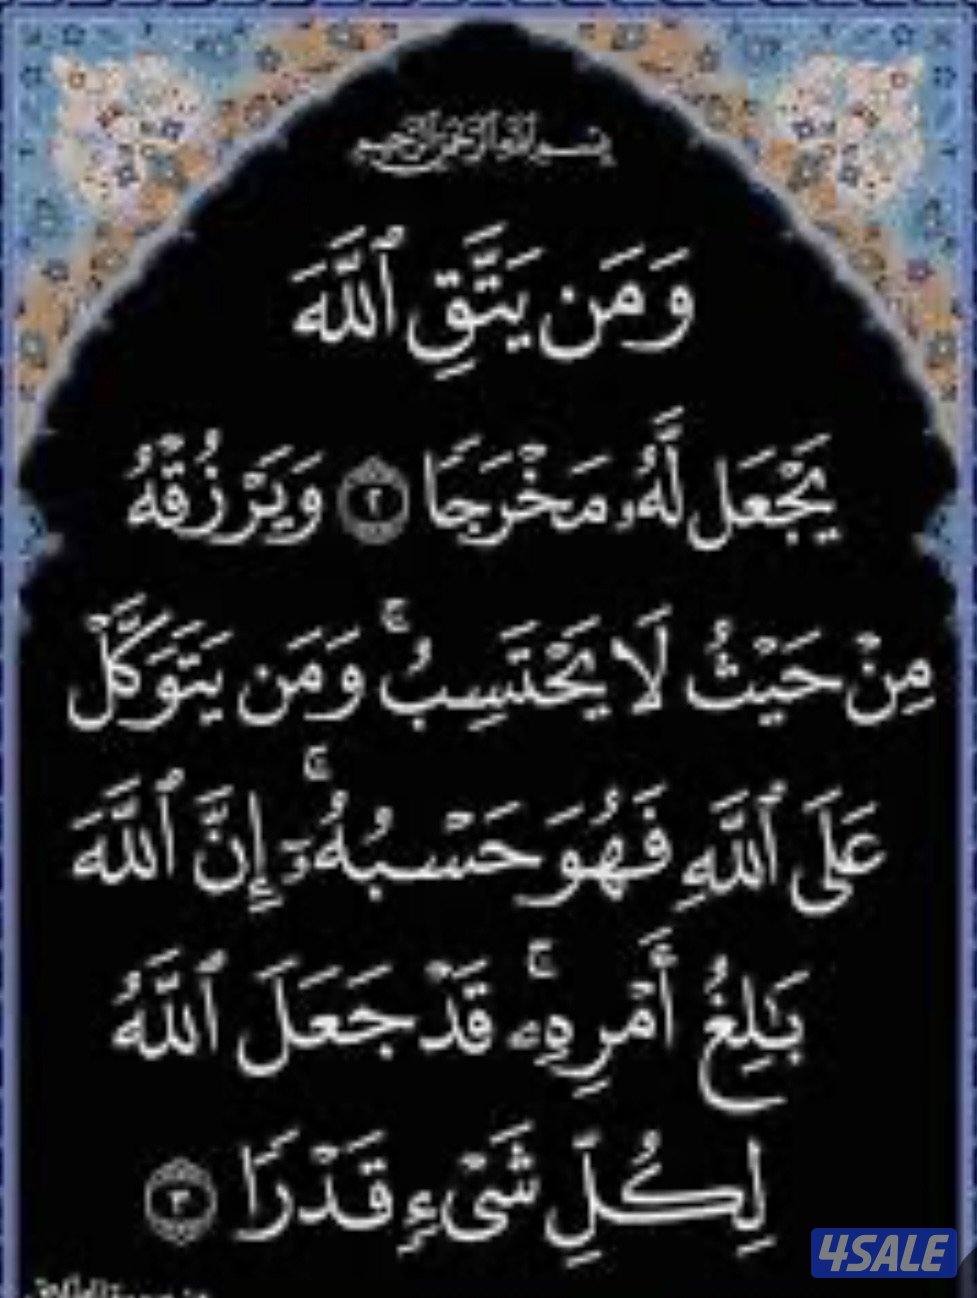 بسم الله الرحمن الرحيم
وَمَن يَتَّقِ ٱللَّهَ
يَجْعَل لَّهُۥ مَخْرَجًا ٢ وَيَرْزُقْهُ
مِنْ حَيْثُ لَا يَحْتَسِبُ ۚ وَمَن يَتَوَكَّلْ
عَلَى ٱللَّهِ فَهُوَ حَسْبُهُۥٓ ۚ إِنَّ ٱللَّهَ
بَٰلِغُ أَمْرِهِۦ ۚ قَدْ جَعَلَ ٱللَّهُ
لِكُلِّ شَىْءٍ قَدْرًا ٣
4SALE